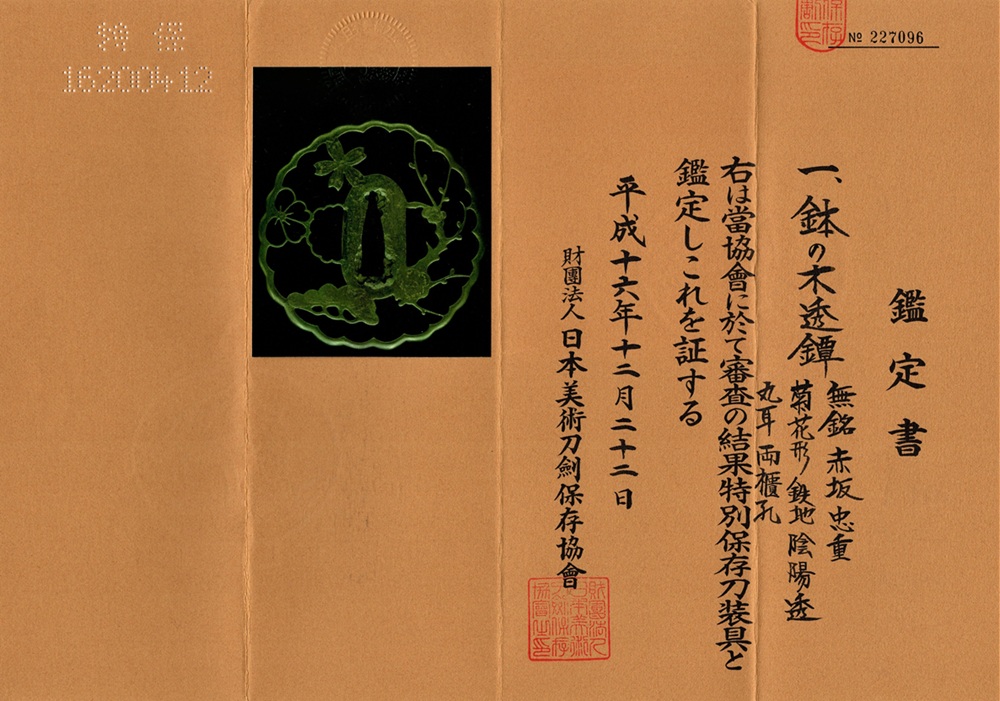 № 227096
鑑定書
一、鉢の木透鐔
無銘 赤坂忠重
菊花形 鉄地 陰陽透
丸耳 両櫃孔
右は當協會に於て審査の結果特別保存刀装具と
鑑定しこれを証する
平成十六年十二月二十二日
財團法人 日本美術刀劍保存協會
特保
16200412